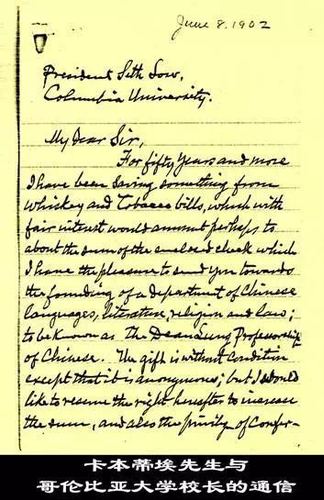 June 8. 1902
President Seth Low,
Columbia University.
My Dear Sir,
For fifty years and more
I have been saving something from
whiskey and Tobacco bills, which with
fair interest would amount perhaps to
about the sum of the enclosed check which
I have the pleasure to send you towards
the founding of a department of Chinese
languages, literature, religion and law;
to be known as The Dean Lung Professorship
of Chinese. The gift is without condition
except that it is anonymous; but I should
like to reserve the right hereafter to increase
the sum, and also the privily of Confer-
卡本蒂埃先生与
哥伦比亚大学校长的通信